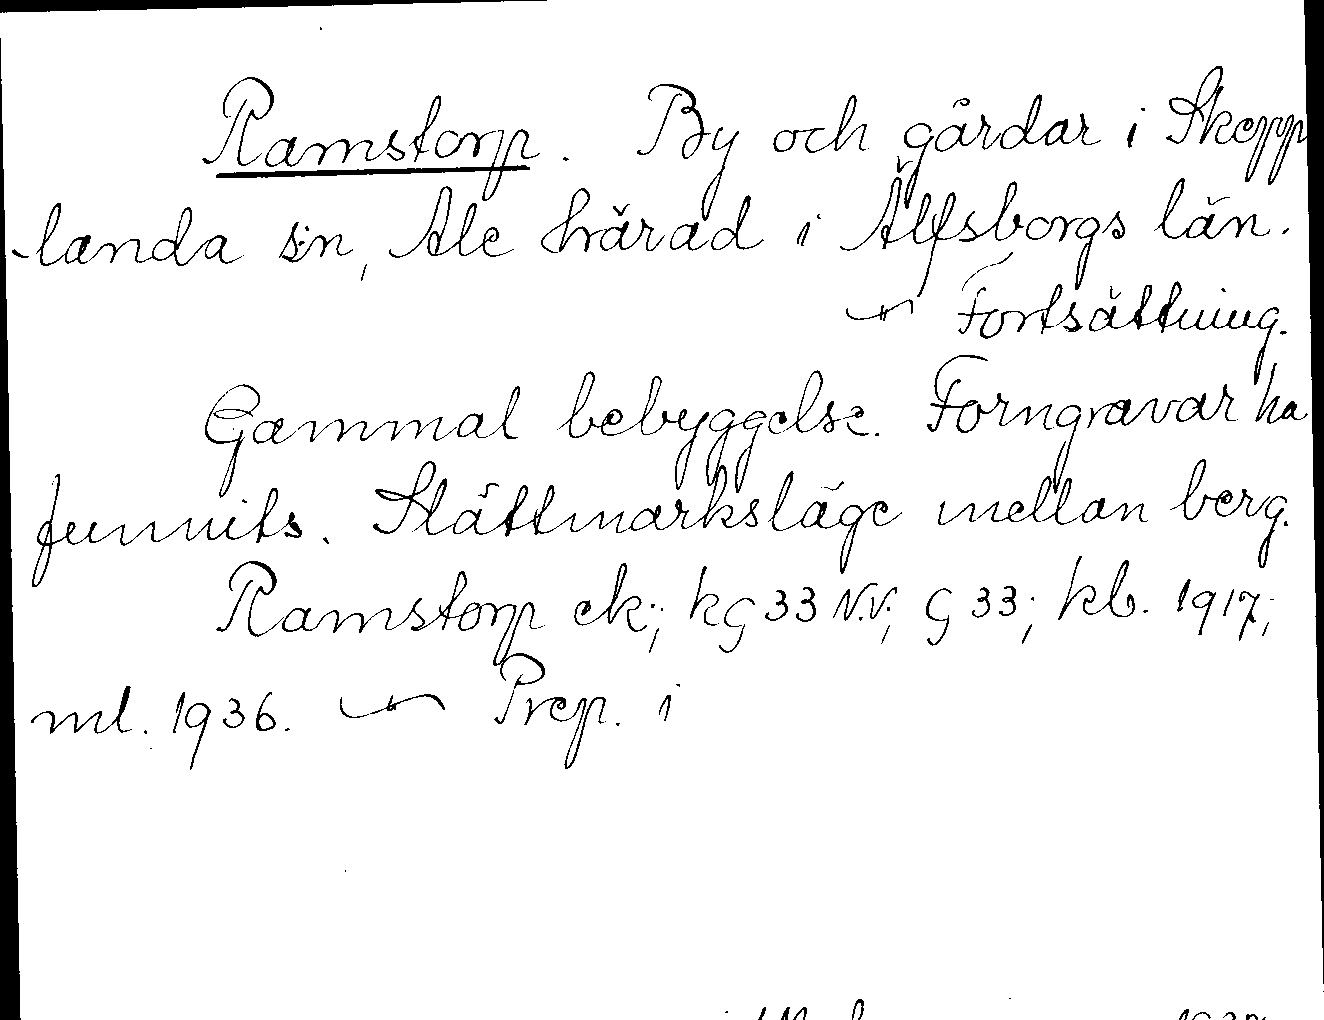 Ramstorp. By och gårdar i Skepp
landa s:n, Ale härad i Älfsborgs län.
~ Fortsättning.
Gammal bebyggelse. Forngravar ha
funnits. Slättmarksläge mellan berg.
Ramstorp ek.; kg 33 N.V.; G 33; kb. 1917;
ml. 1936. ~ Prep. i